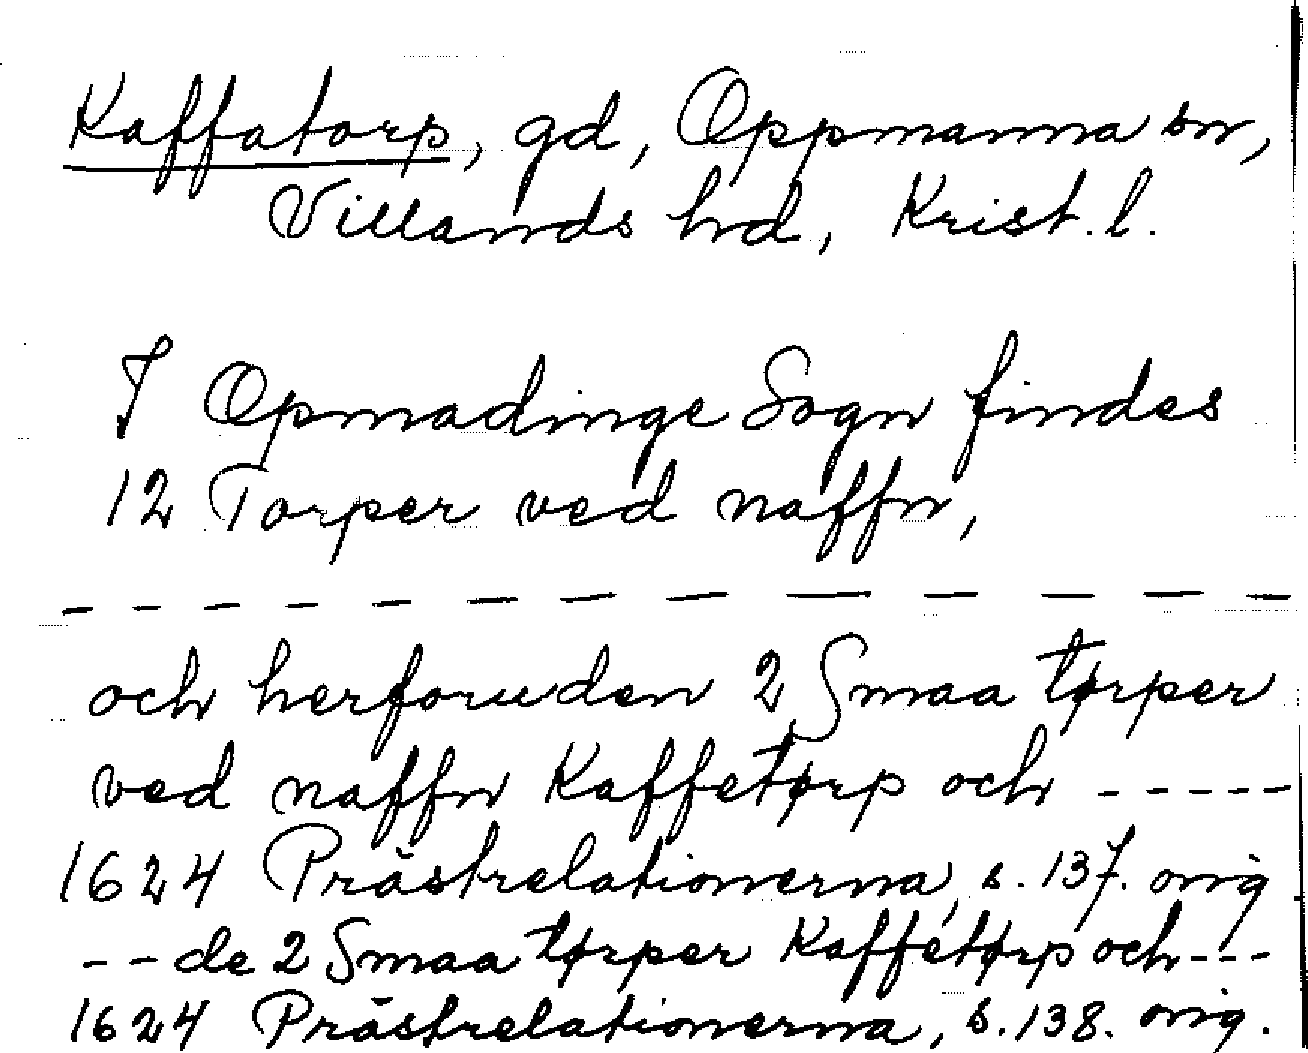 Kaffatorp, gd, Oppmanna sn,
Villands hd, Krist. l.
I Opmadinge Sogn findes
12 Torper ved naffn,
— — — — — — — — — — — — —
och herforuden 2 Smaa tørper
ved naffn Kaffetørp och -----
1624 Prästrelationerna, s. 137. orig
-- de 2 Smaa tørper Kaffetørp och ---
1624 Prästrelationerna, s. 138. orig.